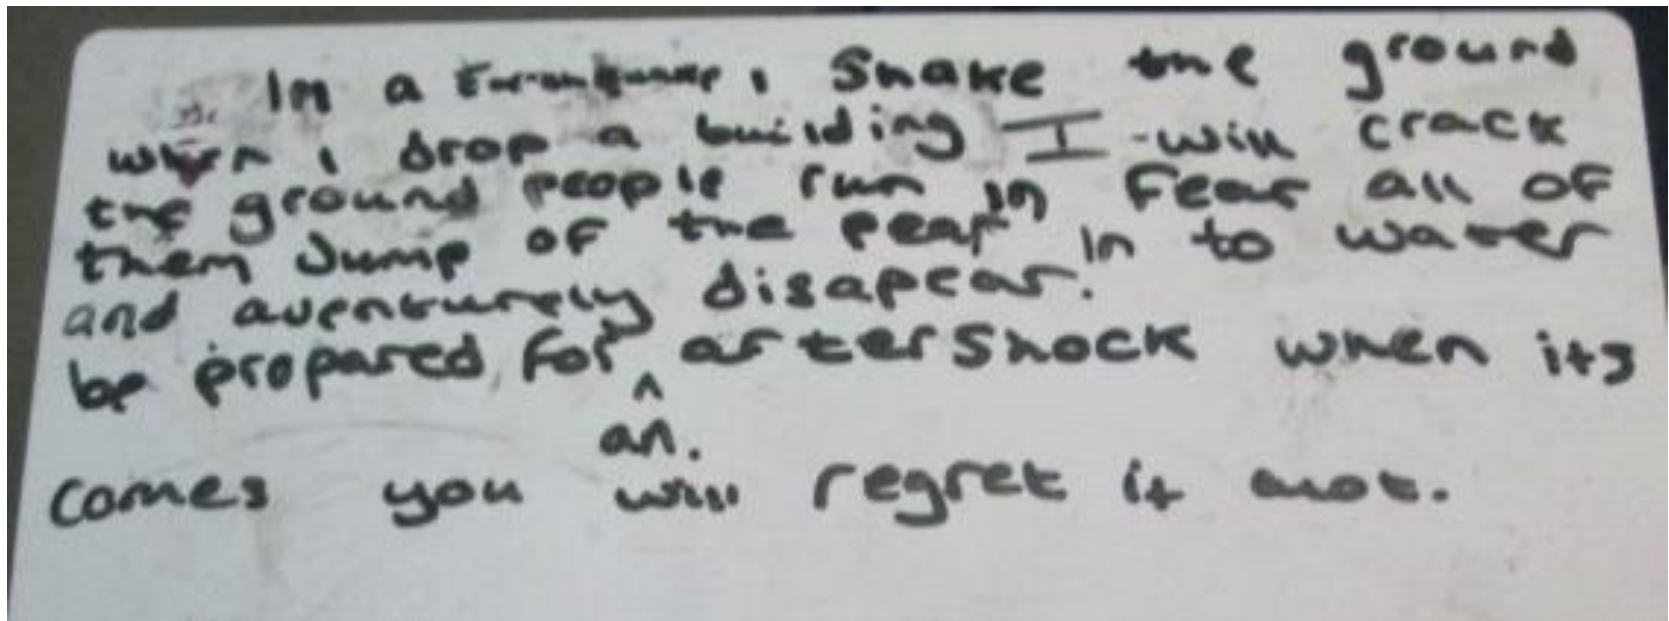 In a Earthquake, Shake the ground
when i drop a building I will crack
the ground people run in fear all of
them Jump of the pear in to water
and aventurely disapear.
be prepared for an. aftershock when its
comes you will regret it alot.